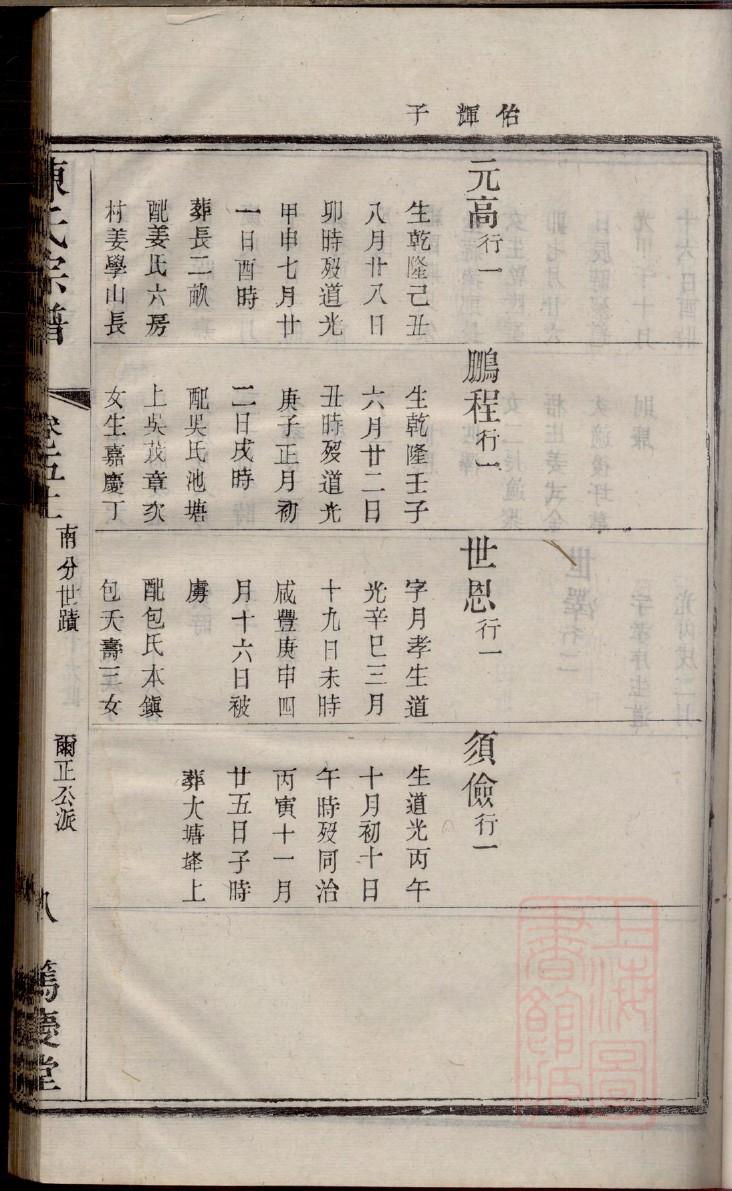 佑輝子
元高行一
生乾隆己丑
八月廿八日
卯時歿道光
甲申七月廿
一日酉時
葬長二畝
配姜氏六房
村姜學山長
鵬程行一
生乾隆壬子
六月廿二日
丑時歿道光
庚子正月初
二日戌時
配吳氏池塘
上吳茂章次
女生嘉慶丁
世恩行一
字月孝生道
光辛巳三月
十九日未時
咸豐庚申四
月十六日被
虜
配包氏本鎮
包天壽三女
須儉行一
生道光丙午
十月初十日
午時歿同治
丙寅十一月
廿五日子時
葬大塘塳上
陳氏宗譜
南分世蹟
爾正公派
八
篤慶堂
上海圖書館藏